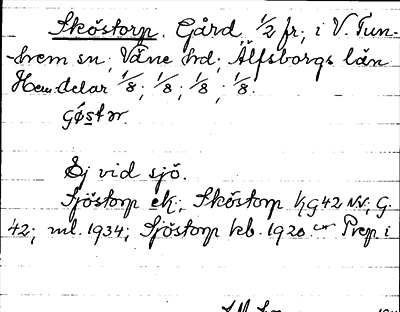 Sköstorp. Gård, 1/2 fr; i V. Tun-
hem sn; Väne hrd; Älfsborgs län
Hem.delar 1/8; 1/8; 1/8; 1/8.
Ej vid sjö.
Sjöstorp ek; Sköstorp hg 42 NV; G.
42; ml. 1934; Sjöstorp kb. 1920 Prep. i